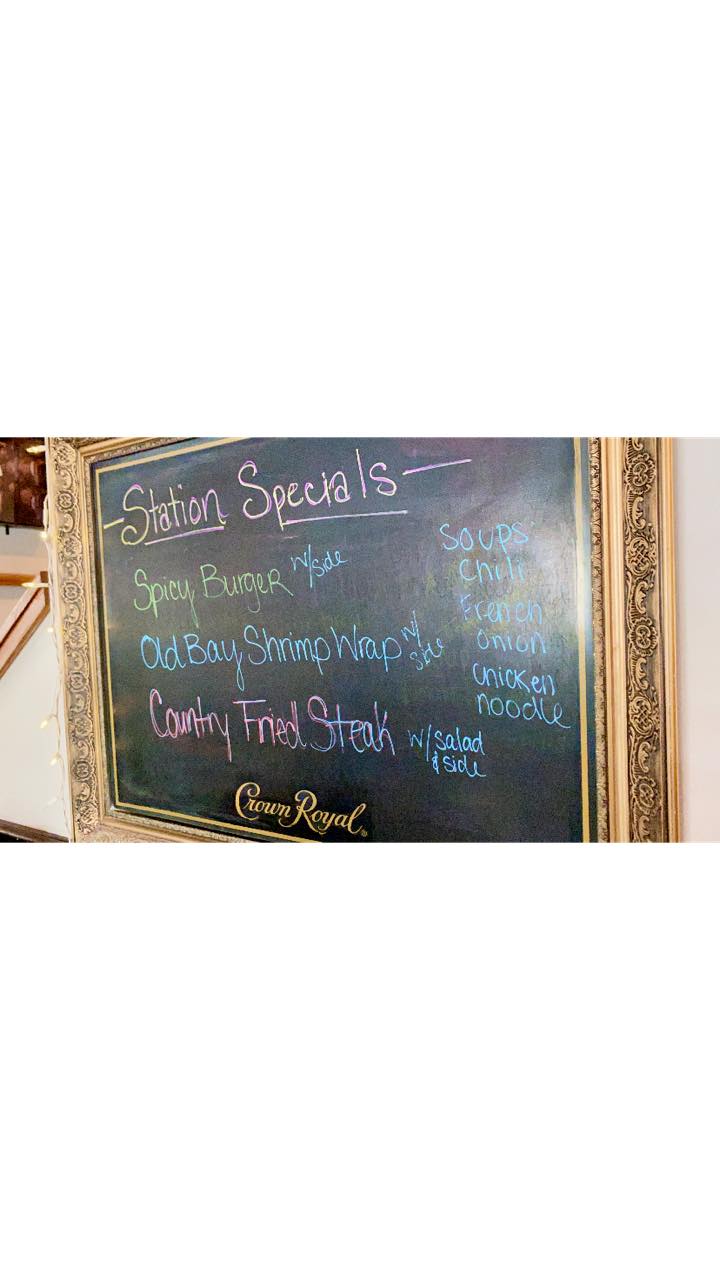 Station Specials
Spicy Burger w/side
Old Bay Shrimp Wrap w/
side
Country Fried Steak w/salad
& side
Soups
Chili
French
onion
chicken
noodle
Crown Royal